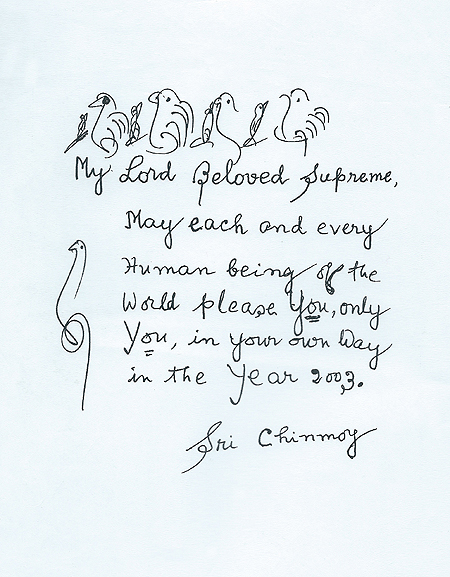 My Lord Beloved Supreme,
May each and every
Human being of the
World please You, only
You, in your own Way
in the Year 2003.
Sri Chinmoy